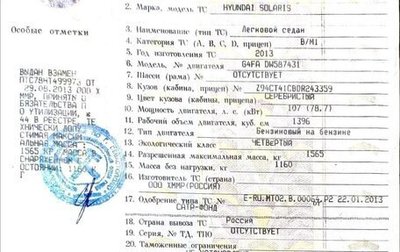 2. Марка, модель ТС HYUNDAI SOLARIS
Особые отметки
3. Наименование (тип ТС) Легковой седан
4. Категория ТС (А, В, С, D, прицеп) В/М1
5. Год изготовления ТС 2013
6. Модель, № двигателя G4FA DW587431
7. Шасси (рама) № ОТСУТСТВУЕТ
8. Кузов (кабина, прицеп) № Z94CT41CBDR243359
9. Цвет кузова (кабины, прицепа) СЕРЕБРИСТЫЙ
10. Мощность двигателя, л. с. (кВт) 107 (78.7)
11. Рабочий объем двигателя, куб. см 1396
12. Тип двигателя Бензиновый на бензине
13. Экологический класс ЧЕТВЕРТЫЙ
14. Разрешенная максимальная масса, кг 1565
15. Масса без нагрузки, кг 1160
16. Изготовитель ТС (страна)
ООО ХММР(РОССИЯ)
17. Одобрение типа ТС № E-RU.MT02.B.00061.P2 22.01.2013
САТР-ФОНД
18. Страна вывоза ТС Россия
19. Серия, № ТД, ТПО ОТСУТСТВУЕТ
20. Таможенные ограничения
ВЫДАН ВЗАМЕН
ПТС78НТ499973 ОТ
29.08.2013 ООО Х
ММР, ПРИНЯТЫ О
БЯЗАТЕЛЬСТВА П
О УТИЛИЗАЦИИ, К
44 В РЕЕСТРЕ
ХНИЧЕСКИ ДОПУ
СТИМАЯ МАКСИМ
АЛЬНАЯ МАССА:
1565 КГ, МАССА
СНАРЯЖЕННОГО С
ОСТОЯНИИ: 1160 К
Г